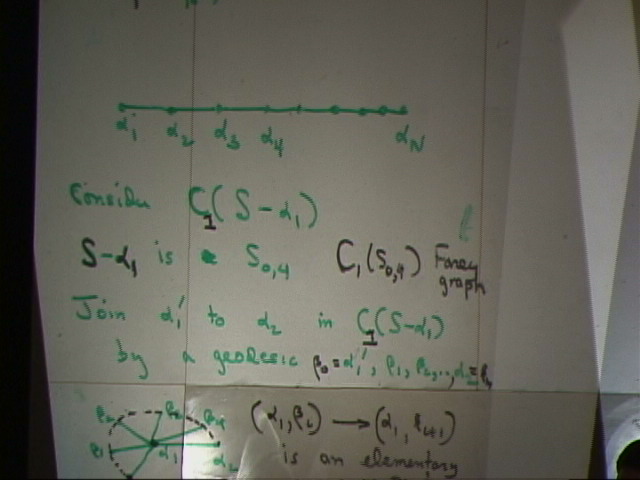 α₁ α₂ α₃ α₄ α_N
Consider C₁(S-α₁)
S-α₁ is a S₀,₄ C₁(S₀,₄) Farey
graph
Join α₁' to α₂ in C₁(S-α₁)
by a geodesic β₀ = α₁', β₁, β₂, .., α₂ =
β₁ α₁ α₂
(α₁, βᵢ) → (α₁, βᵢ₊₁)
is an elementary